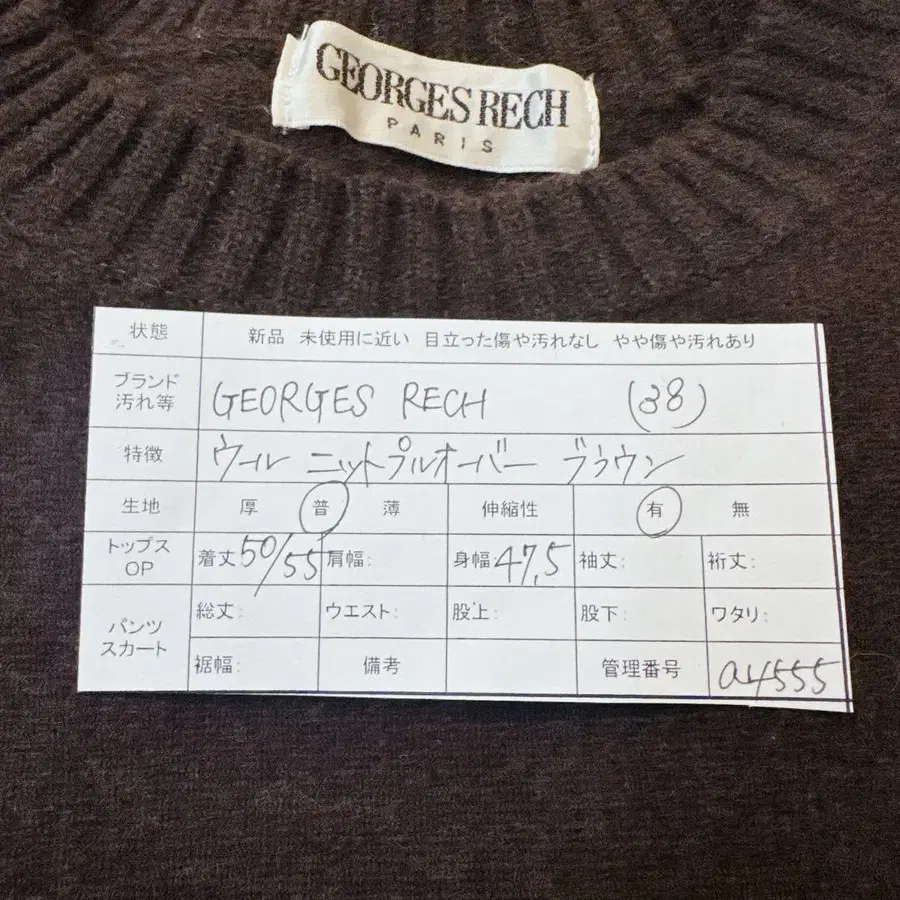 GEORGES RECH
PARIS
状態 新品 未使用に近い 目立った傷や汚れなし やや傷や汚れあり
ブランド
汚れ等 GEORGES RECH (38)
特徴 ウール ニットプルオーバー ブラウン
生地 厚 普 薄 伸縮性 有 無
トップス
OP 着丈 50/55 肩幅: 身幅 47,5 袖丈: 裄丈:
パンツ
スカート 総丈: ウエスト: 股上: 股下: ワタリ:
裾幅: 備考 管理番号 a4555